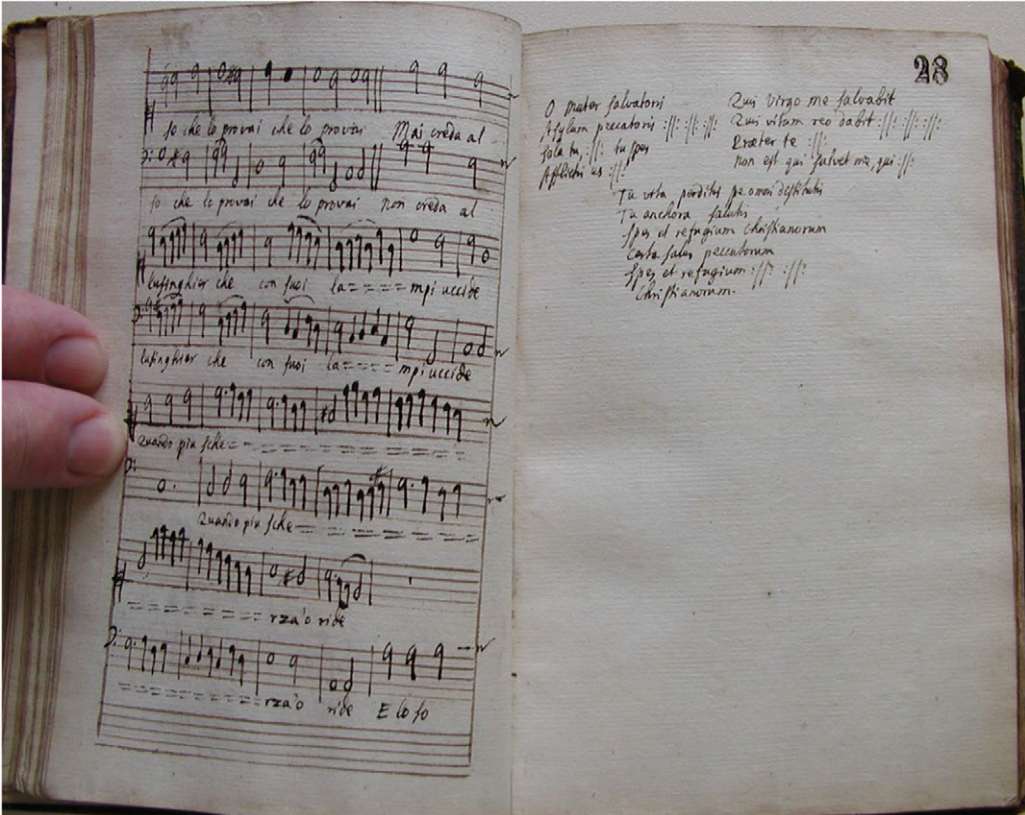 so che lo provai che lo provai Mai creda al
so che lo provai che lo provai non creda al
lusinghier che con suoi la==== mpi uccide
lusinghier che con suoi la==== mpi uccide
Quando piu sche=
Quando piu sche
rza'o ride
rza'o ride E lo so
28
O mater salvatoris
Asylum peccatoris :||: :||: :||:
sola tu, :||: tu spes
Afflictis es :||:
Qui Virgo me salvabit
Qui vitam reo dabit :||: :||: :||:
Præter te :||:
non est qui salvet me, qui :||:
Tu vita perditis spe omni destitutis
Tu anchora salutis
spes et refugium Christianorum
Certa salus peccatorum
spes et refugium :||: :||:
Christianorum.